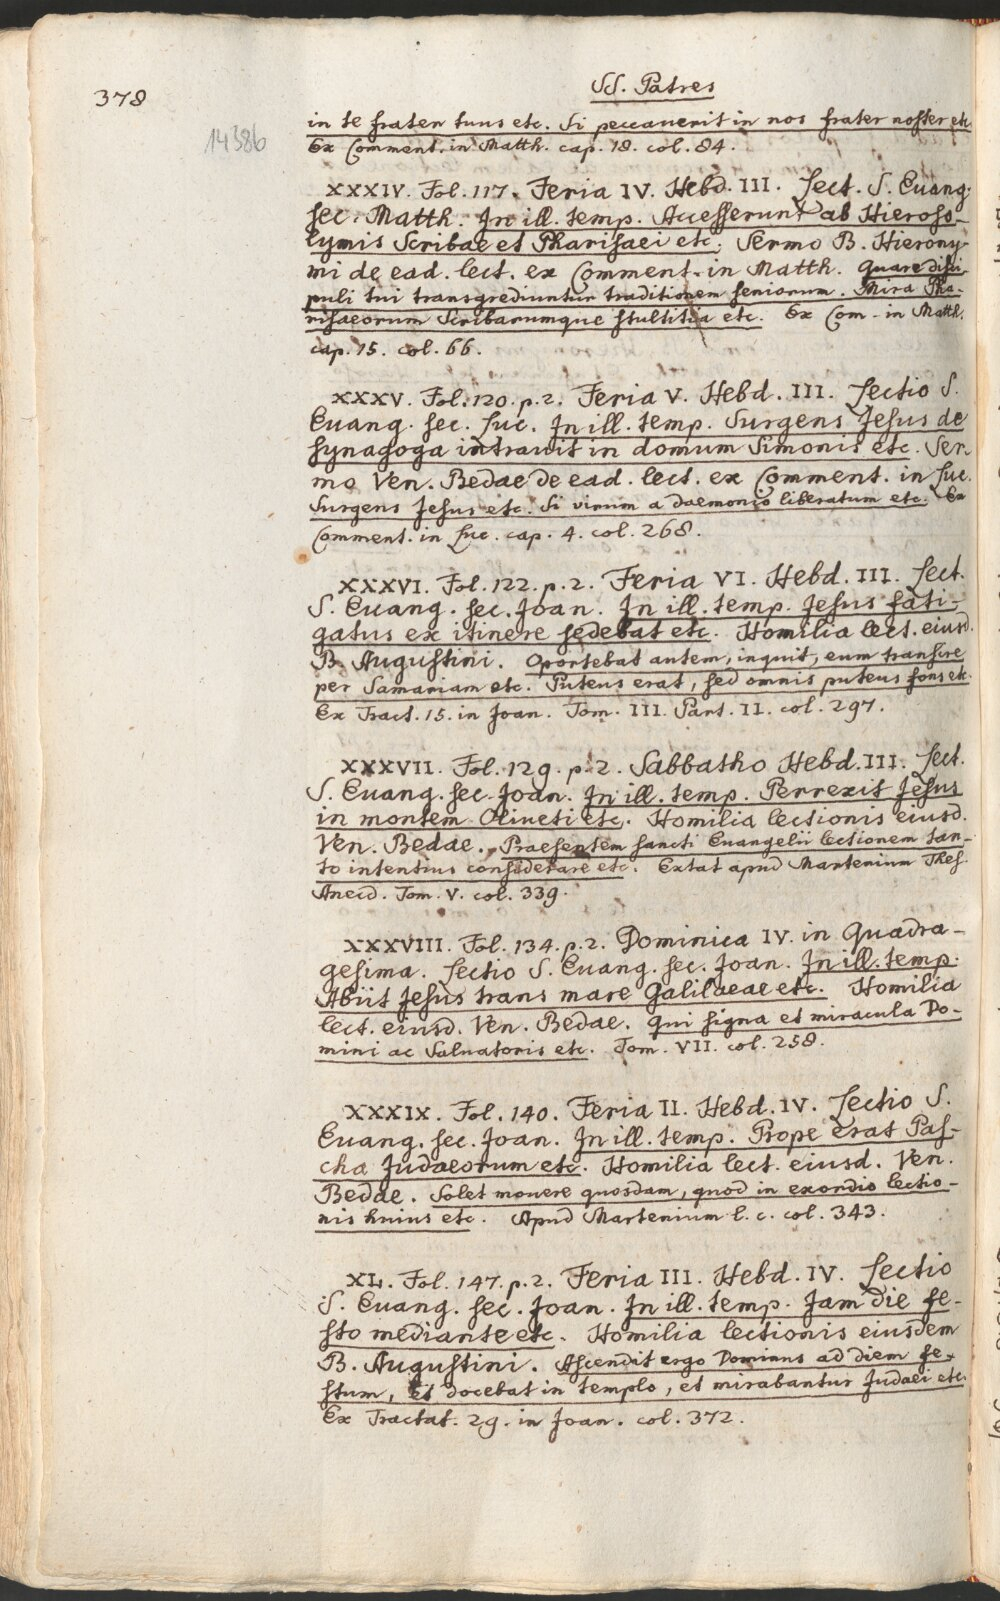 378
SS. Patres
14386
in te frater tuus etc. Si peccauerit in nos frater noster etc.
Ex Comment. in Matth. cap. 18. col. 84.
XXXIV. Fol. 117. Feria IV. Hebd. III. Lect. S. Euang.
sec. Matth. In ill. temp. Accesserunt ab Hieroso-
lymis Scribae et Pharisaei etc. Sermo B. Hierony-
mi de ead. lect. ex Comment. in Matth. Quare disci-
puli tui transgrediuntur traditionem seniorum. Mira Pha-
risaeorum Scribarumque stultitia etc. Ex Com- in Matth.
cap. 15. col. 66.
XXXV. Fol. 120. p. 2. Feria V. Hebd. III. Lectio S.
Euang. sec. Luc. In ill. temp. Surgens Jesus de
synagoga intrauit in domum Simonis etc. Ser-
mo Ven. Bedae de ead. lect. ex Comment. in Luc.
Surgens Jesus etc. Si virum a daemonio liberatum etc. Ex
Comment. in Luc. cap. 4. col. 268.
XXXVI. Fol. 122. p. 2. Feria VI. Hebd. III. Lect.
S. Euang. sec. Joan. In ill. temp. Jesus fati-
gatus ex itinere sedebat etc. Homilia lect. eiusd.
B. Augustini. Oportebat antem, inquit, eum transire
per Samariam etc. Puteus erat, sed omnis puteus fons etc.
Ex Tract. 15. in Joan. Tom. III. Part. II. col. 297.
XXXVII. Fol. 129. p. 2. Sabbatho Hebd. III. Lect.
S. Euang. sec. Joan. In ill. temp. Perrexit Jesus
in montem Oliueti etc. Homilia lectionis eiusd.
Ven. Bedae. Praesentem sancti Euangelii lectionem tan-
to intentius considerare etc. Extat apud Martenium Thes.
Anecd. Tom. V. col. 339.
XXXVIII. Fol. 134. p. 2. Dominica IV. in Quadra-
gesima. Lectio S. Euang. sec. Joan. In ill. temp.
Abiit Jesus trans mare Galilaeae etc. Homilia
lect. eiusd. Ven. Bedae. Qui signa et miracula Do-
mini ac Saluatoris etc. Tom. VII. col. 258.
XXXIX. Fol. 140. Feria II. Hebd. IV. Lectio S.
Euang. sec. Joan. In ill. temp. Prope erat Pas-
cha Judaeorum etc. Homilia lect. eiusd. Ven.
Bedae. Solet mouere quosdam, quod in exordio lectio-
nis huius etc. Apud Martenium l. c. col. 343.
XL. Fol. 147. p. 2. Feria III. Hebd. IV. Lectio
S. Euang. sec. Joan. In ill. temp. Jam die fe-
sto mediante etc. Homilia lectionis eiusdem
B. Augustini. Ascendit ergo Dominus ad diem fe-
stum, et docebat in templo, et mirabantur Judaei etc.
Ex Tractat. 29. in Joan. col. 372.